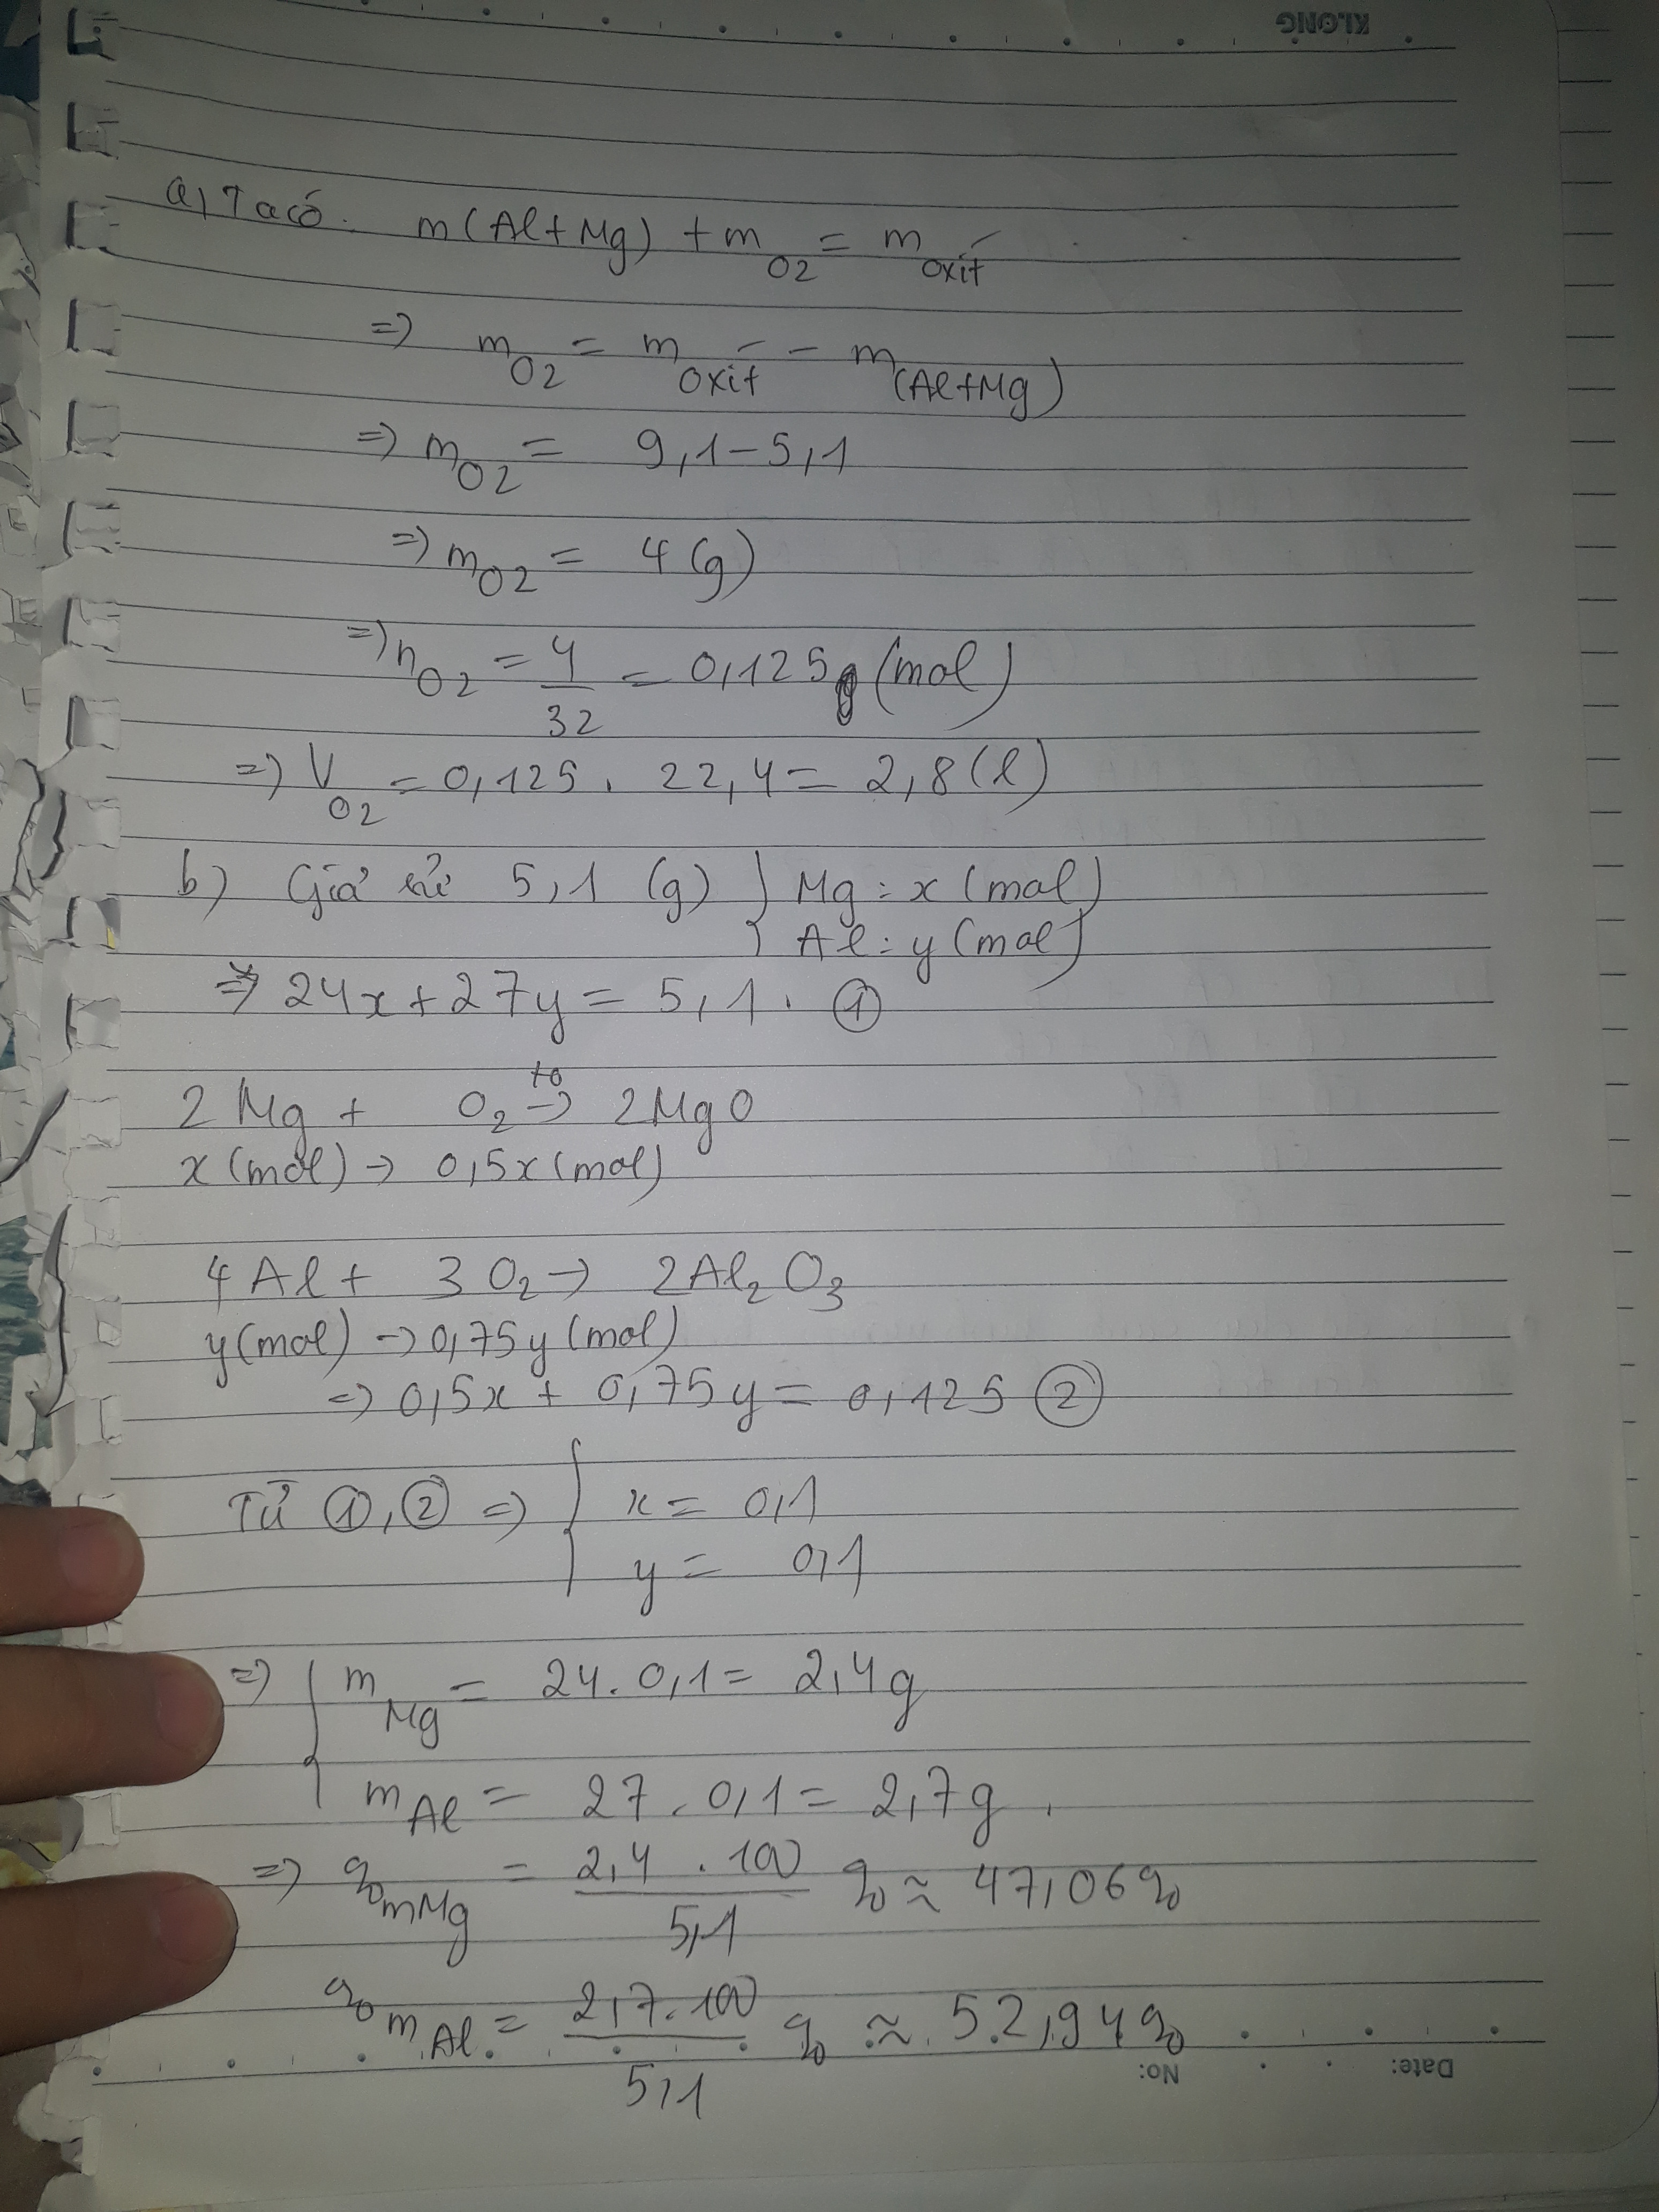 KLONG
a, Ta có: m(Al+Mg) + mO2 = m oxit
=> mO2 = m oxit - m(Al+Mg)
=> mO2 = 9,1-5,1
=> mO2 = 4 (g)
=> nO2 = 4/32 = 0,125 (mol)
=> VO2 = 0,125 . 22,4 = 2,8 (l)
b) Giả sử 5,1 (g) } Mg: x (mol)
Al: y (mol)
=> 24x + 27y = 5,1 . ①
2Mg + O2 to→ 2MgO
x (mol) → 0,5x (mol)
4Al + 3O2 → 2Al2O3
y (mol) → 0,75y (mol)
=> 0,5x + 0,75y = 0,125 ②
Từ ①, ② => { x = 0,1
y = 0,1
=> { mMg = 24 . 0,1 = 2,4g
mAl = 27 . 0,1 = 2,7g .
=> %mMg = 2,4 . 100/5,1 % ≈ 47,06%
%mAl = 2,7 . 100/5,1 % ≈ 52,94%
No: Date: